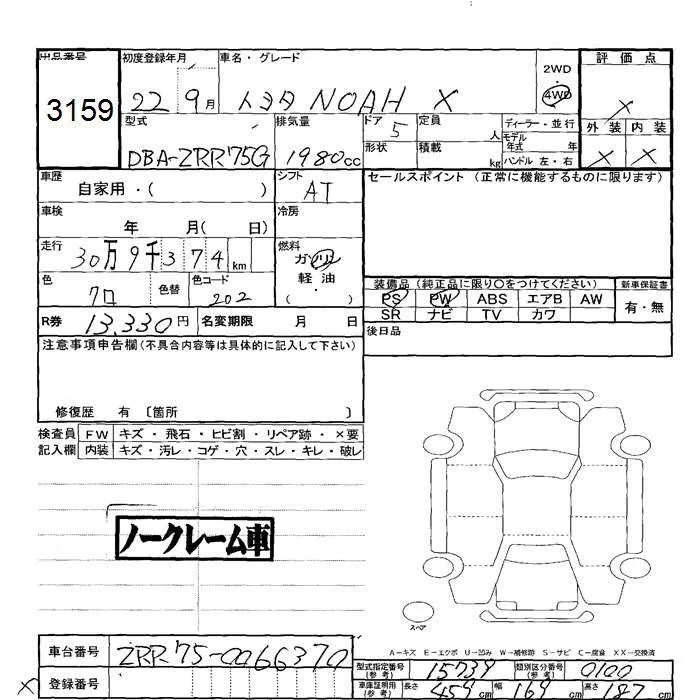 出品番号 初度登録年月 車名・グレード 2WD 評価点
3159 22 9月 トヨタ NOAH X 4WD X
型式 排気量 ドア 5 定員 人 ディーラー・並行 外装 内装
モデル年式 年
DBA-ZRR75G 1980cc 形状 積載 kg ハンドル 左・右 X X
車歴 自家用・( ) シフト AT セールスポイント (正常に機能するものに限ります)
車検 年 月( 日) 冷房
走行 30万9千374km 燃料 ガソリン
軽・油
( )
色 クロ 色替 色コード 202 装備品 (純正品に限り○をつけてください) 新車保証書
PS PW ABS エアB AW 有・無
R券 13,330円 名変期限 月 日 SR ナビ TV カワ
注意事項申告欄(不具合内容等は具体的に記入して下さい) 後日品
修復歴 有 〔箇所 〕
検査員 FW キズ・飛石・ヒビ割・リペア跡・×要
記入欄 内装 キズ・汚レ・コゲ・穴・スレ・キレ・破レ
ノークレーム車
スペア
A−キズ E−エクボ U−凹み W−補修跡 S−サビ C−腐食 XX−交換済
車台番号 ZRR75-0066370 型式指定番号(参考) 15739 類別区分番号(参考) 0100
X 登録番号 車庫証明用(参考) 長さ 459cm 幅 169cm 高さ 187cm